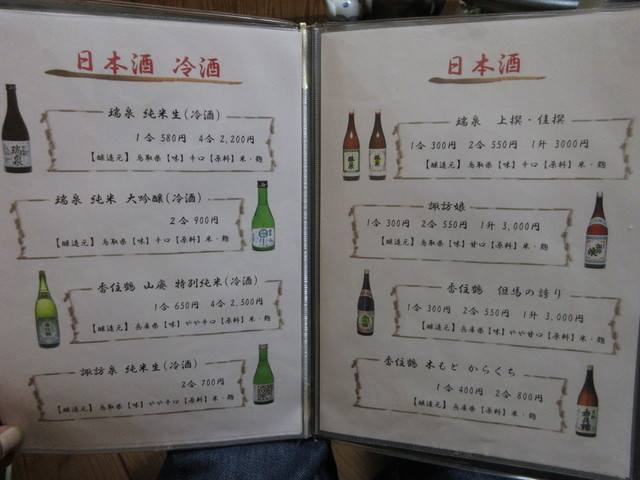 日本酒 冷酒
瑞泉 純米生(冷酒)
1合 580円 4合 2,200円
【醸造元】鳥取県【味】辛口【原料】米・麹
瑞泉 純米 大吟醸(冷酒)
2合 900円
【醸造元】鳥取県【味】辛口【原料】米・麹
香住鶴 山廃 特別純米(冷酒)
1合 650円 4合 2,500円
【醸造元】兵庫県【味】やや辛口【原料】米・麹
諏訪泉 純米生(冷酒)
2合 700円
【醸造元】鳥取県【味】やや辛口【原料】米・麹
日本酒
瑞泉 上撰・佳撰
1合 300円 2合 550円 1升 3000円
【醸造元】鳥取県【味】辛口【原料】米・麹
諏訪娘
1合 300円 2合 550円 1升 3,000円
【醸造元】鳥取県【味】甘口【原料】米・麹
香住鶴 但馬の誇り
1合 300円 2合 550円 1升 3,000円
【醸造元】兵庫県【味】やや甘口【原料】米・麹
香住鶴 木もと からくち
1合 400円 2合 800円
【醸造元】兵庫県【味】辛口【原料】米・麹
瑞泉